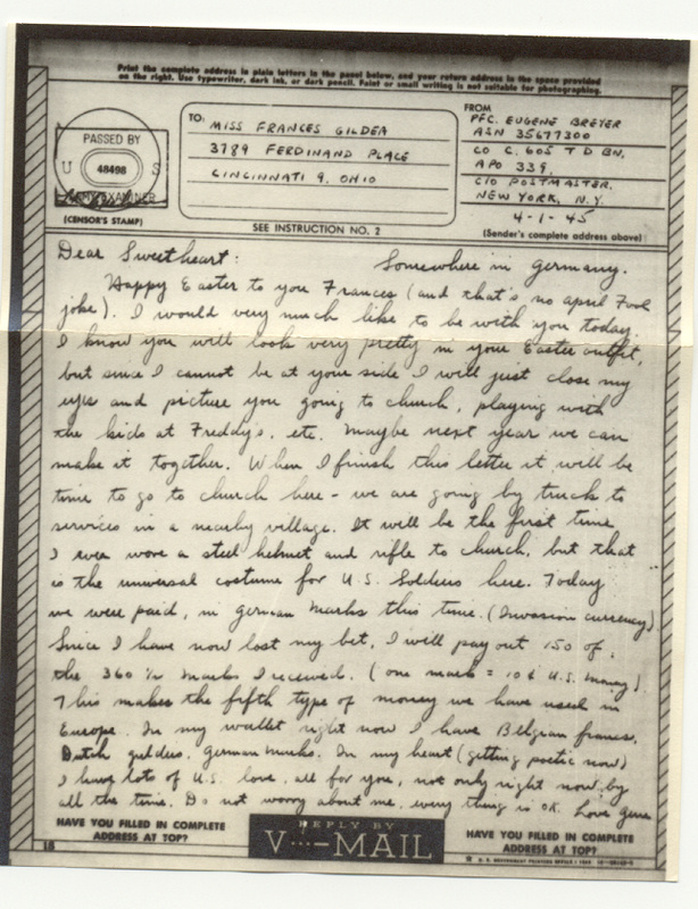 Print the complete address in plain letters in the panel below, and your return address in the space provided
on the right. Use typewriter, dark ink, or dark pencil. Faint or small writing is not suitable for photographing.
PASSED BY
U S
48498
ARMY EXAMINER
(CENSOR'S STAMP)
TO:
MISS FRANCES GILDEA
3789 FERDINAND PLACE
CINCINNATI 9, OHIO
SEE INSTRUCTION NO. 2
FROM
PFC. EUGENE BREYER
ASN 35677300
CO C, 605 T D BN.
APO 339,
C/O POSTMASTER.
NEW YORK, N.Y.
4-1-45
(Sender's complete address above)
Dear Sweetheart: Somewhere in Germany.
Happy Easter to you Frances (and that's no April Fool
joke). I would very much like to be with you today.
I know you will look very pretty in your Easter outfit,
but since I cannot be at your side I will just close my
eyes and picture you going to church, playing with
the kids at Freddy's, etc. Maybe next year we can
make it together. When I finish this letter it will be
time to go to church here - we are going by truck to
services in a nearby village. It will be the first time
I ever wore a steel helmet and rifle to church, but that
is the universal costume for U.S. Soldiers here. Today
we were paid, in German Marks this time. (Invasion currency)
Since I have now lost my bet, I will pay out 150 of
the 360 1/2 Marks I received. (one mark = 10¢ U.S. money).
This makes the fifth type of money we have used in
Europe. In my wallet right now I have Belgian francs,
Dutch gulders, German Marks. In my heart (getting poetic now)
I have lots of U.S. love, all for you, not only right now, by
all the time. Do not worry about me, every thing is OK. Love Gene
HAVE YOU FILLED IN COMPLETE
ADDRESS AT TOP?
REPLY BY
V···—MAIL
HAVE YOU FILLED IN COMPLETE
ADDRESS AT TOP?